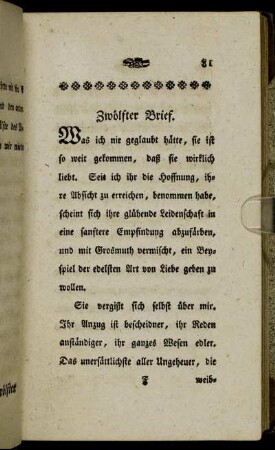 81
Zwölfter Brief.
Was ich nie geglaubt hätte, sie ist
so weit gekommen, daß sie wirklich
liebt. Seit ich ihr die Hoffnung, ih-
re Absicht zu erreichen, benommen habe,
scheint sich ihre glühende Leidenschaft in
eine sanftere Empfindung abzufärben,
und mit Grosmuth vermischt, ein Bey-
spiel der edelsten Art von Liebe geben zu
wollen.
Sie vergißt sich selbst über mir.
Ihr Anzug ist bescheidner, ihr Reden
anständiger, ihr ganzes Wesen edler.
Das unersättlichste aller Ungeheuer, die
F weib-